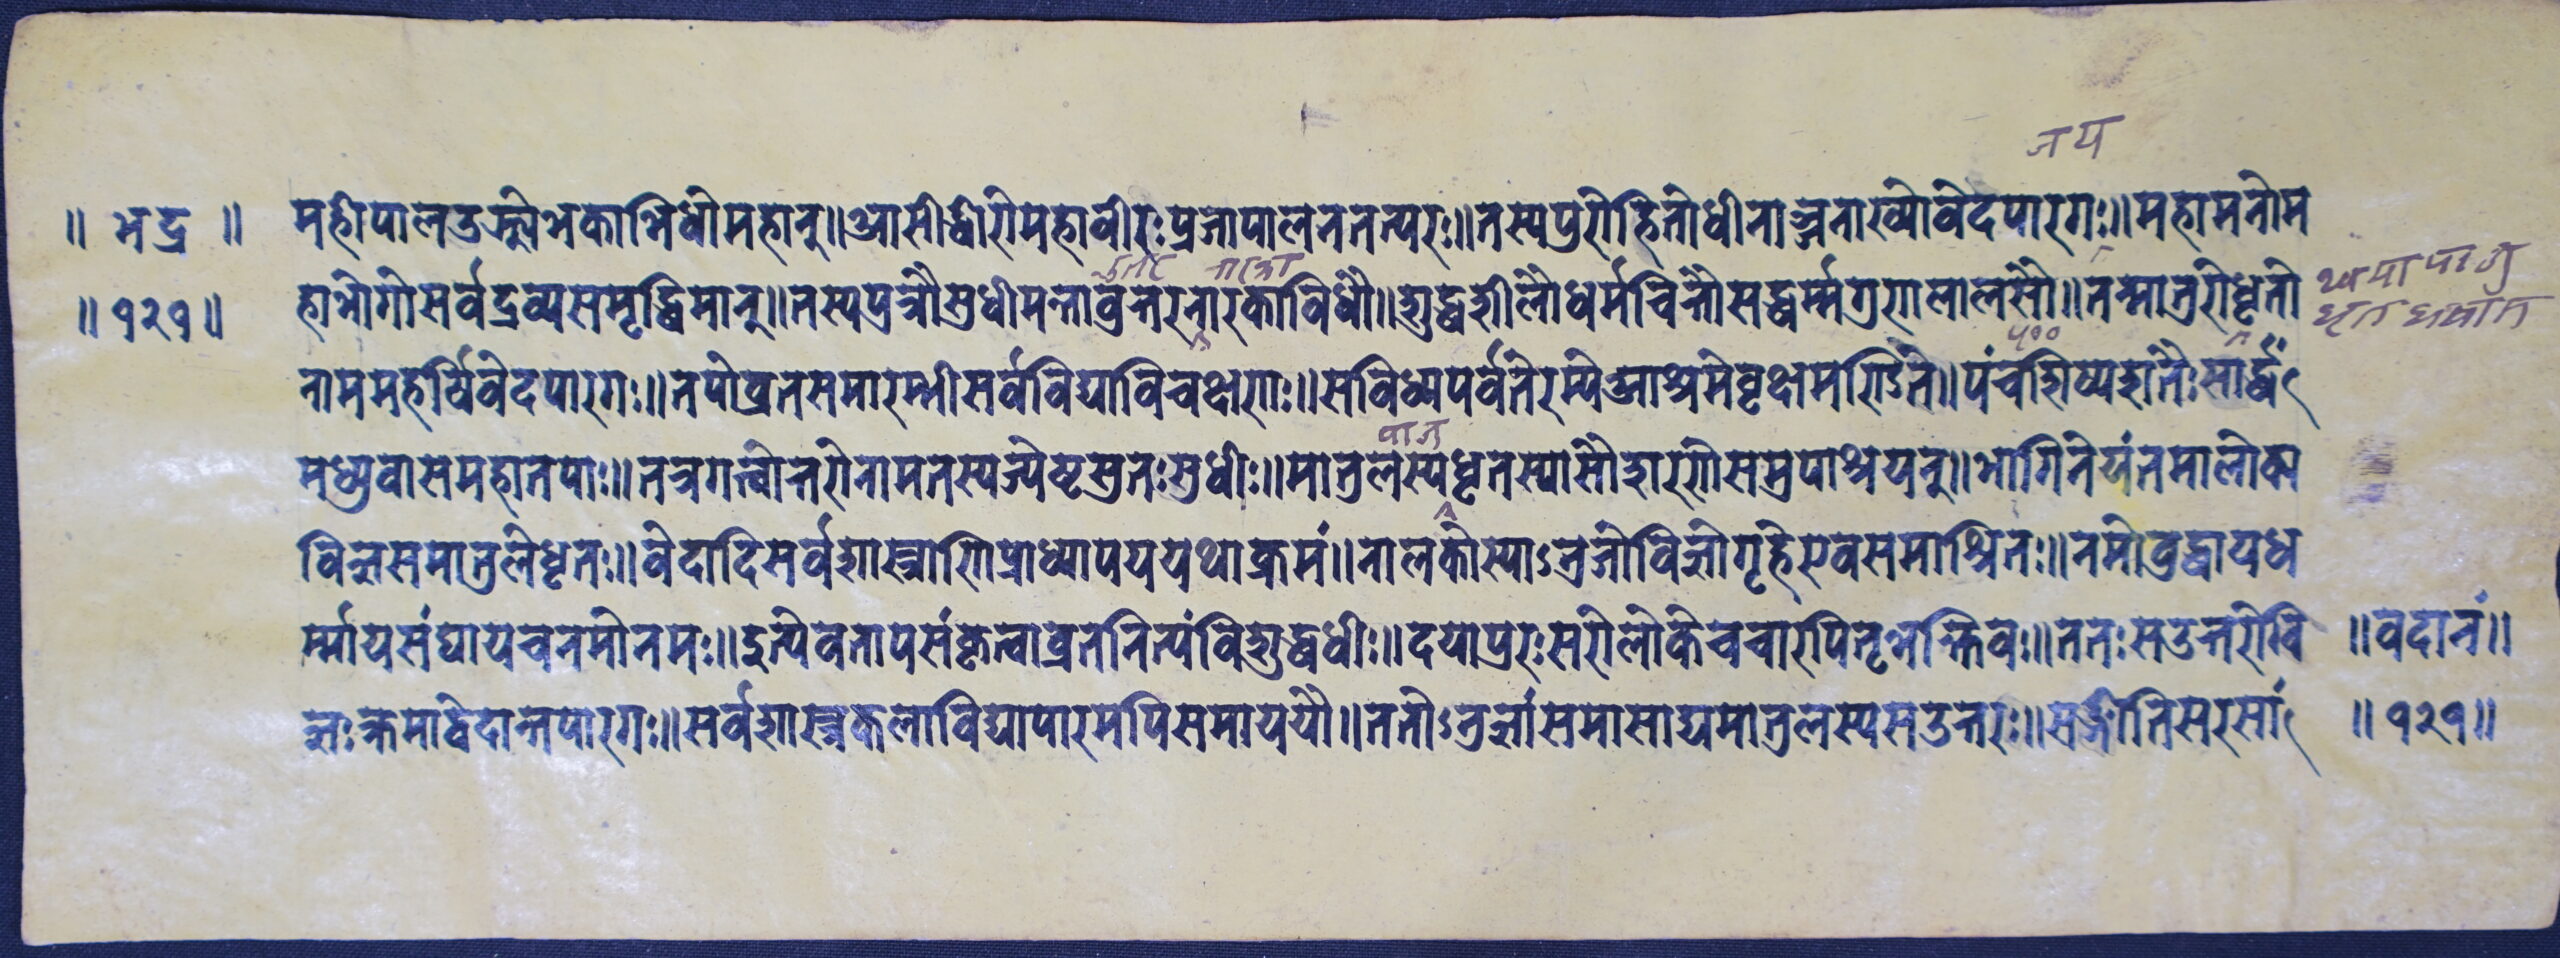 जय
॥ भद्र ॥ महीपालउज्झ्योभकाभिधोमहान्॥आसीद्धीरोमहावीरःप्रजापालनतत्परः॥तस्यपुरोहितोधीनाञ्जनाख्योवेदपारगः॥महामतोम
॥१२१॥ हाभोगीसर्वद्रव्यसमृद्धिमान्॥तस्यपुत्रौसुधीमन्तावुत्तरनारकाविधौ॥शुद्धशीलौधर्मचित्तौसद्धर्म्मगुणलालसौ॥तन्मातुरोधृतो
नाममहर्षिर्वेदपारगः॥तपोव्रतसमारम्भीसर्वविद्याविचक्षणः॥सविध्यपर्वतेरम्येआश्रमेवृक्षमण्डिते॥पंचशिष्यशतैःसार्द्धं
५००
मध्युवासमहातपाः॥तत्रगत्वोत्तरोनामतस्यज्येष्टसुतःसुधीः॥मातुलस्यधृतस्यासौशरणेसमुपाश्रयन्॥भागिनेयंतमालोक्य
विज्ञसमातुलेधृतः॥वेदादिसर्वशास्त्राणिप्राध्यापययथाक्रमं॥नालकोस्याऽनुजोविज्ञोगृहेएवसमाश्रितः॥नमोबुद्धायध
र्म्मायसंघायचनमोनमः॥इत्येवनापसंकृत्वाव्रतनित्यंविशुद्धधीः॥दयापुरःसरोलोकेचचारपितृभक्तिवः॥ततःसउत्तरोवि ॥वदानं॥
ज्ञःक्रमाद्वेदान्तपारगः॥सर्वशास्त्रकलाविद्यापारमपिसमाययौ॥ततोऽनुज्ञांसमासाद्यमातुलस्यसउत्तरः॥ ॥१२१॥